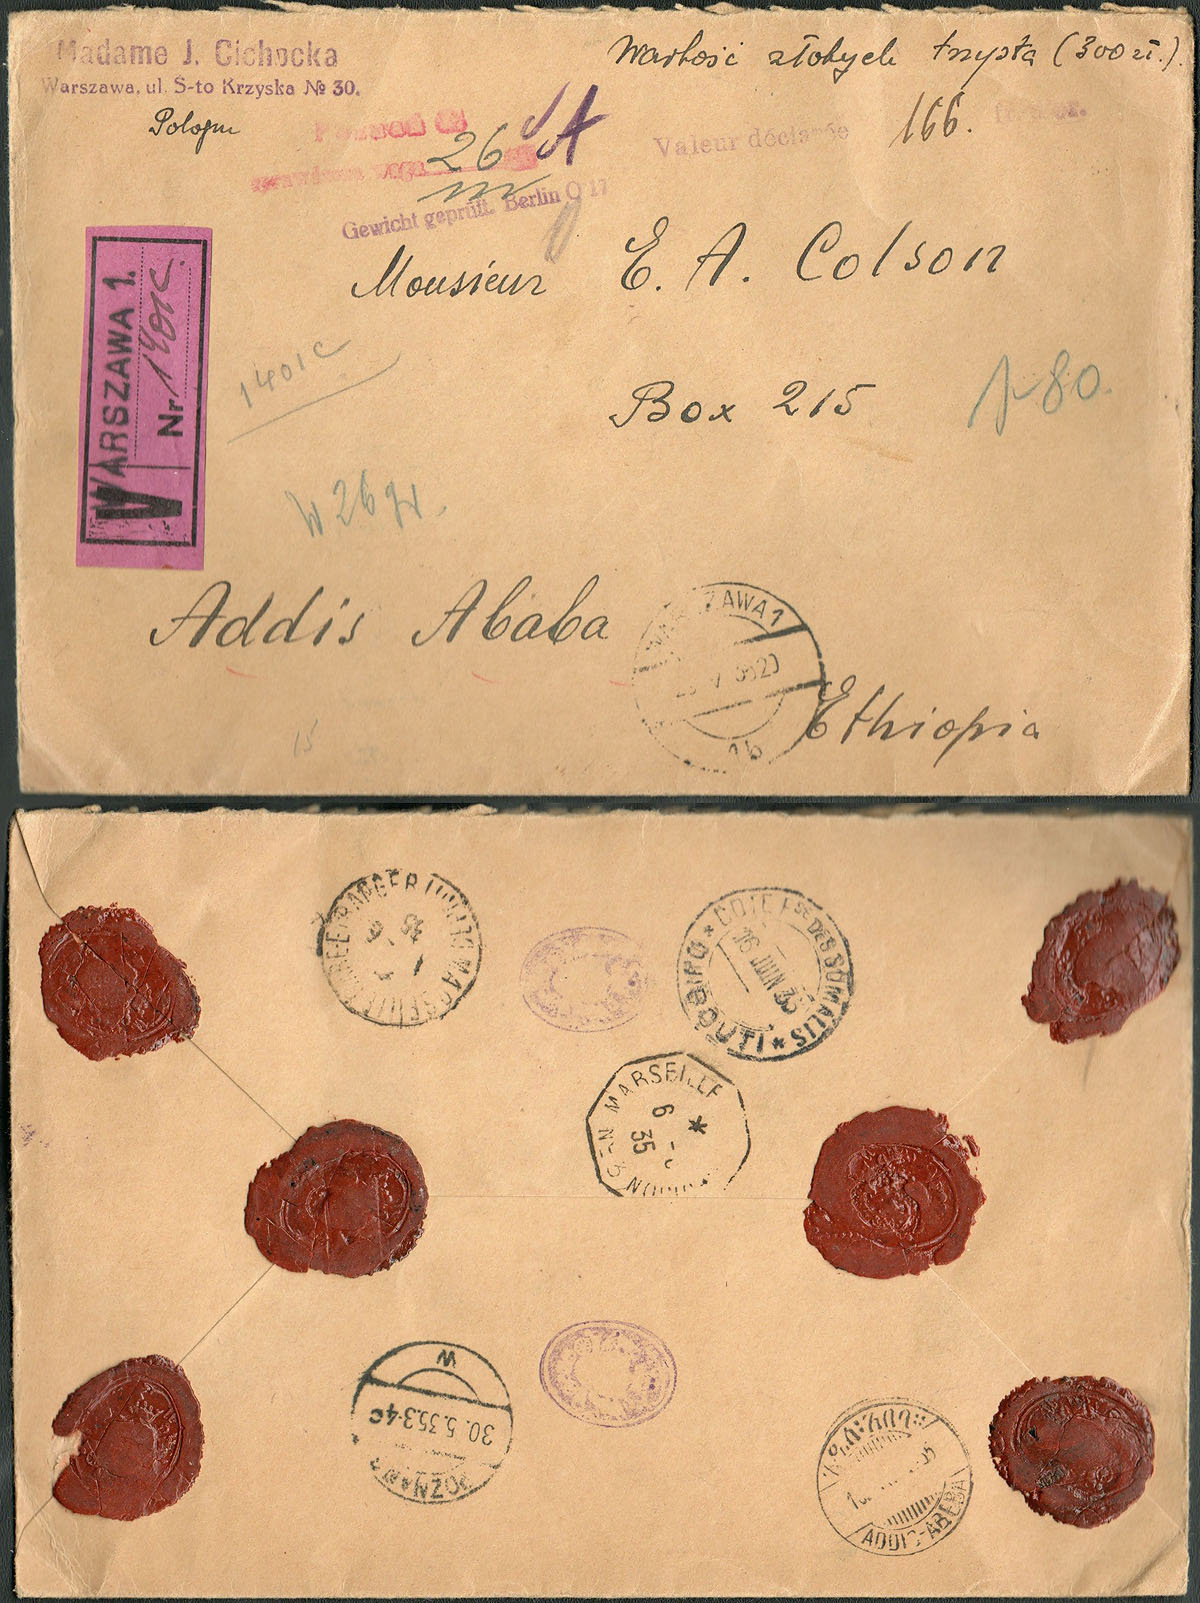 Madame J. Cichocka
Warszawa, ul. S-to Krzyska № 30.
Wartość złotych trzysta (300 zł.).
Valeur déclarée
166.
26
A
Gewicht geprüft. Berlin O 17
Monsieur E. A. Colson
WARSZAWA 1.
Nr 1401c.
V
1401c
Box 215
80.
W 26 gr.
Addis Ababa
WARSZAWA 1
1b
Ethiopia
15
COTE FSE DES SOMALIS
16 JUIN 35
DJIBOUTI
MARSEILLE
6
35
W
30.5.35.3-4
POZNAŃ
አዲስ፡አበባ
ADDIS-ABEBA